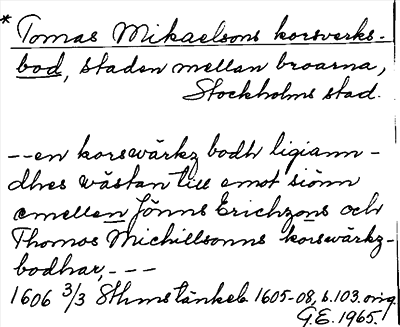 * Tomas Mikaelsons korsverks-
bod, staden mellan broarna,
Stockholms stad.
--en korswärkz bodh ligiann-
dhes wästan till emot siönn
emellen Jönns Erichzons och
Thomos Michillsonns korswärkz-
bodhar, ---
1606 3/3 Sthms tänkeb. 1605-08, s.103. orig.
G.E. 1965.